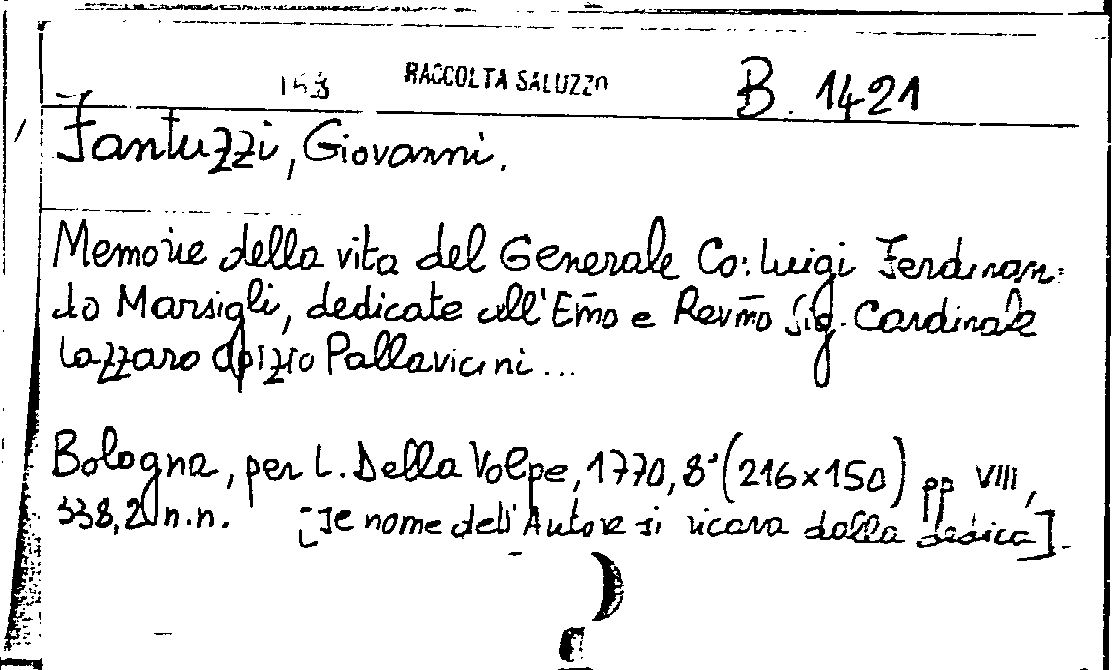 153 RACCOLTA SALUZZO B. 1421
Fantuzzi, Giovanni.
Memorie della vita del Generale Co: Luigi Ferdinan:
do Marsigli, dedicate all'Em̃o e Revm̃o Sig. Cardinale
Lazzaro Opizio Pallavicini...
Bologna, per L. Della Volpe, 1770, 8° (216x150) pp VIII,
338, 2 n.n. [Il nome dell'Autore si ricava dalla dedica].